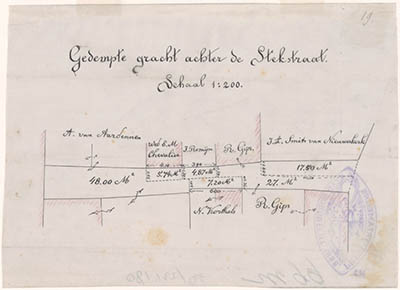 19
Gedempte gracht achter de Stekstraat.
Schaal 1:200.
A. van Aardennen
Wd. E. M.
Chevalier
J. Romijn
R. Gips
J. A. Smits van Nieuwerkerk
48.00 M²
5.74 M²
4.87 M²
7.20 M²
17.80 M²
27. M²
N. Korthals
R. Gips